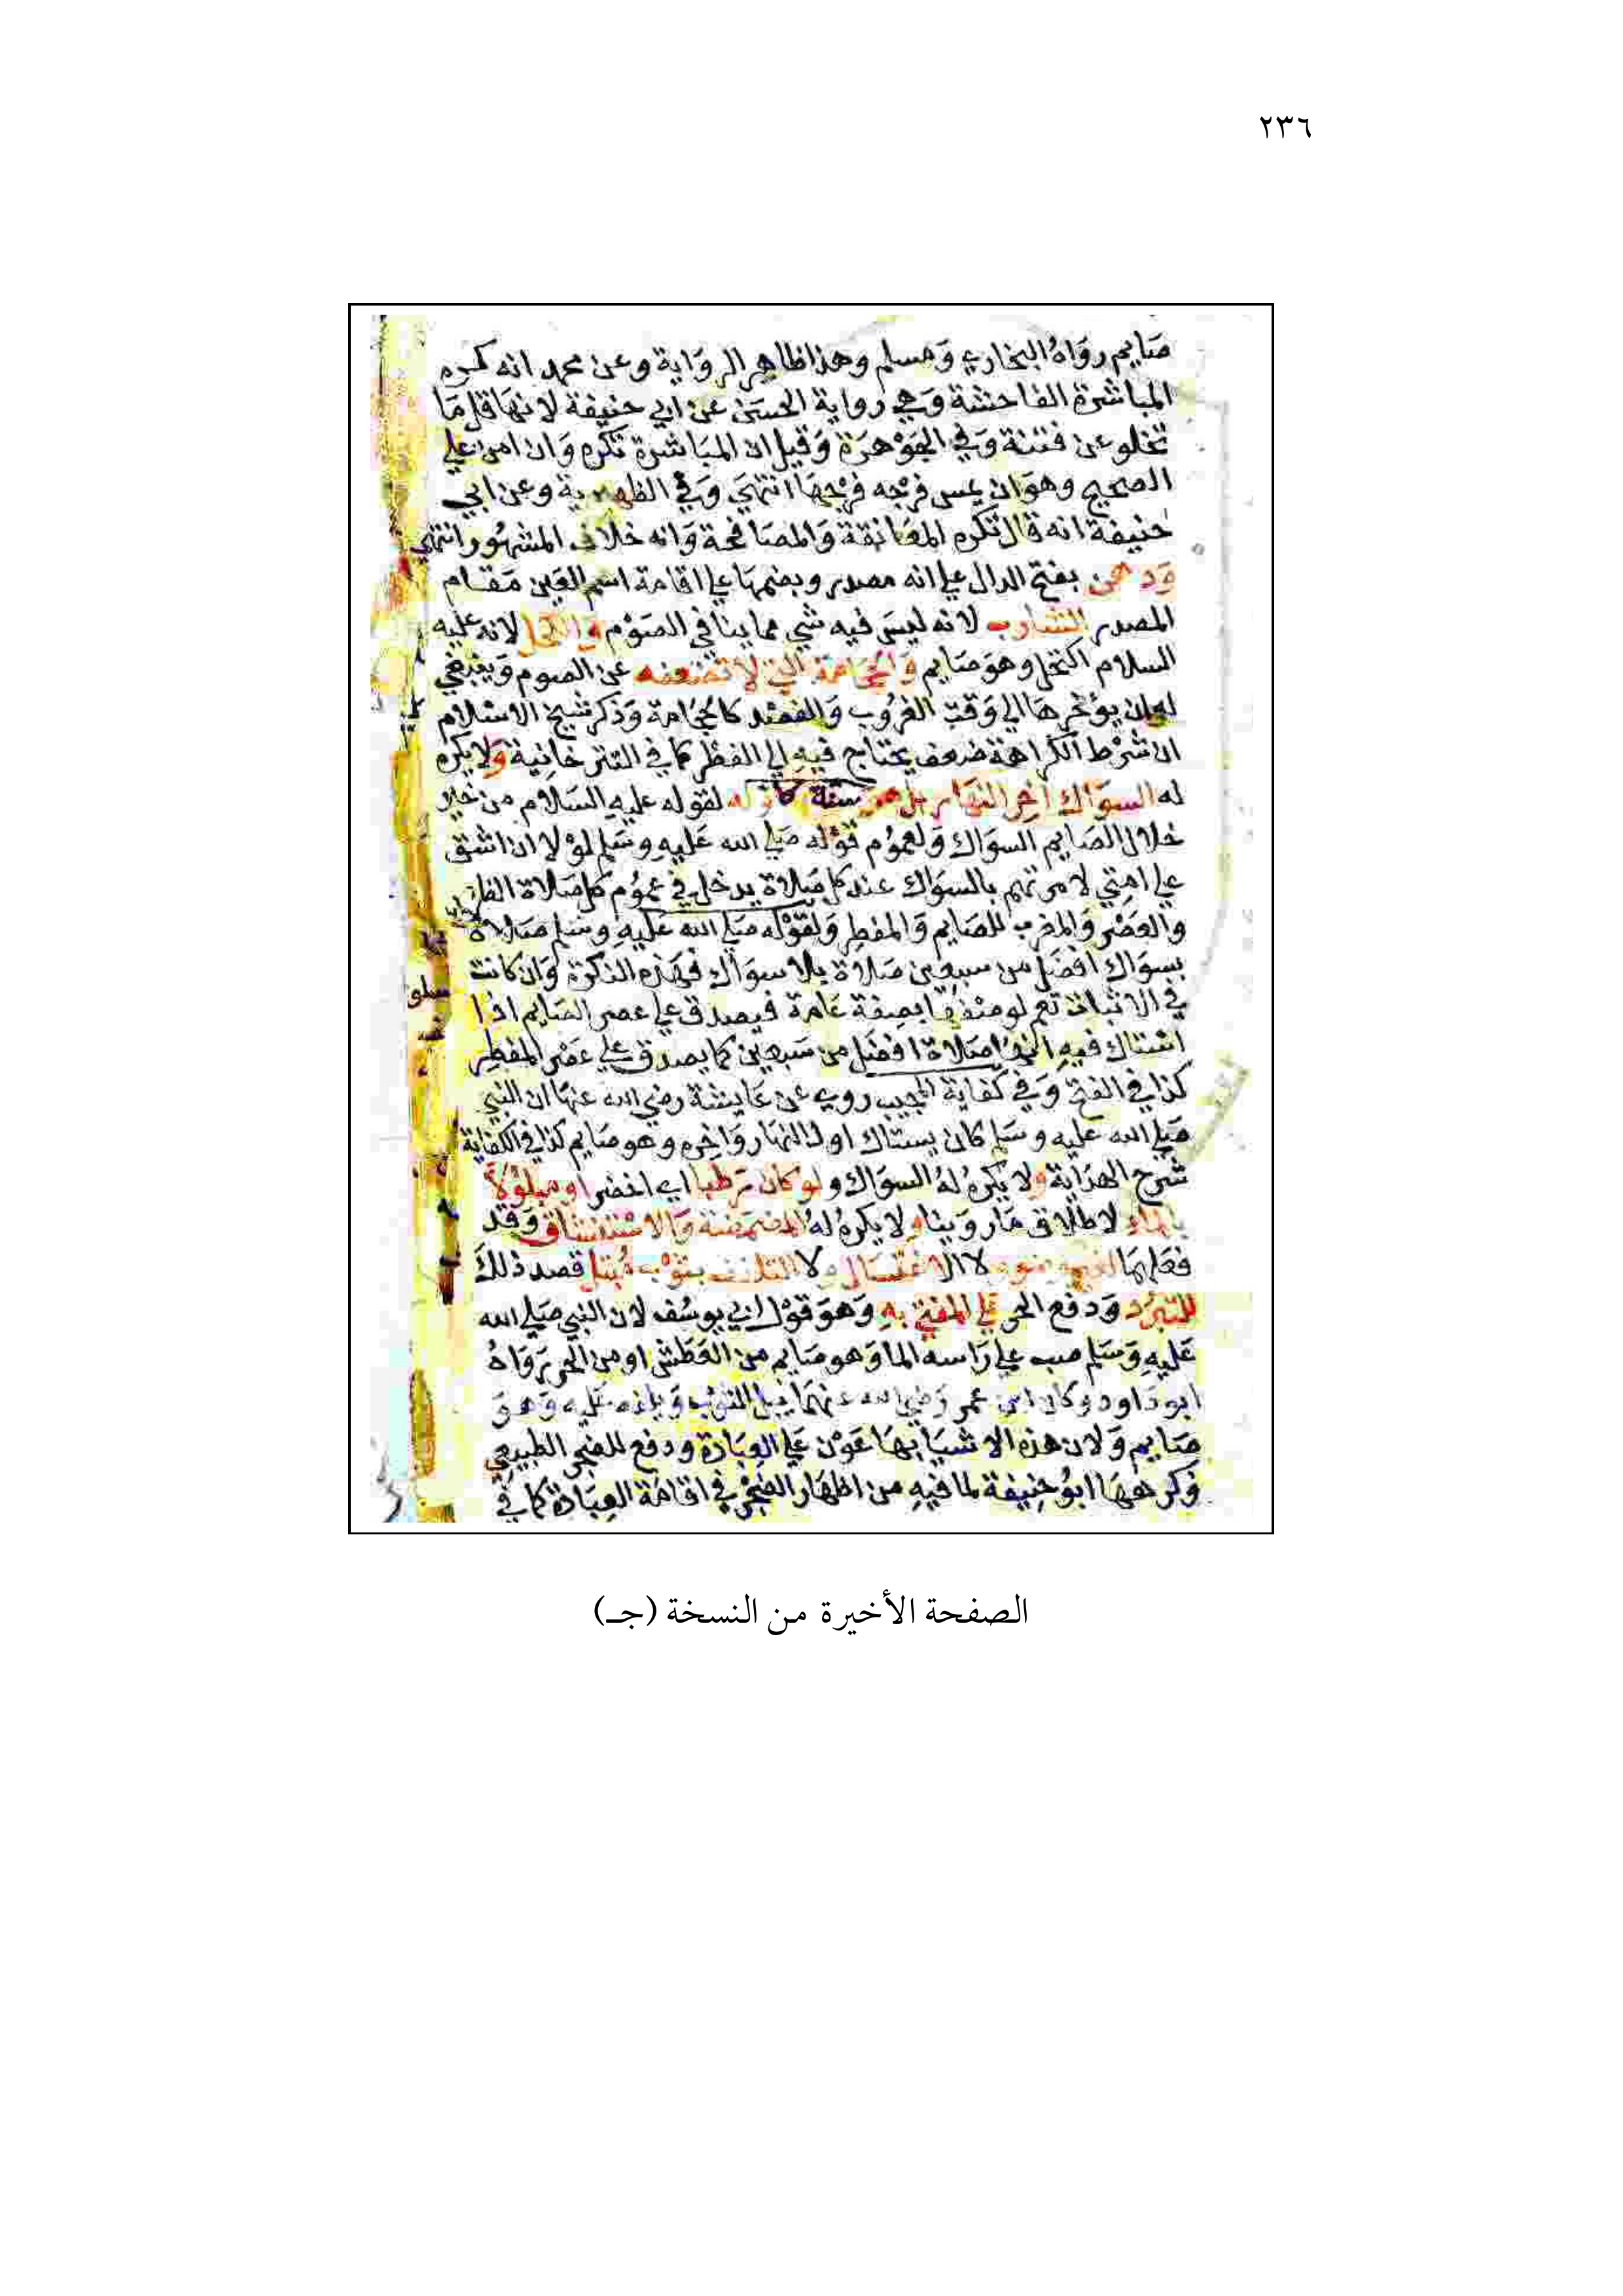 ٢٣٦
صَايم رواهُ البخاري وَمسلم وهذا ظاهِر الروَاية وعن محمد انه كره
المباشرة الفاحشة وَهي رواية الحسَن عن ابي حنيفة لانهَا قل مَا
تخلو عن فتنة وَفي الجَوْهرَة وَقيل ان المبَاشرة تكره وَان امن علي
الصحيح وهوَ ان يمس فرجه فرْجهَا انتهيَ وَفي الظهيرية وعن ابي
حنيفة انه قال تكره المعَانقة وَالمصَافحة وَانه خلاف المشهُور انتهي
وَدهن بفتح الدال علي انه مصدر وبضمهَا علي اقامة اسم العَين مَقام
المصدر الشارب لانه ليسَ فيه شي مما ينافي الصَوْم وَالكحل لانه عليه
السلام اكتحل وهوَ صَايم وَالحجَامة التي لا تضعفه عن الصوم وَينبغي
له ان يؤخرهَا الي وَقت الغرُوب وَالفصْد كالحجَامة وَذكر شيخ الاسْلام
ان شرْط الكراهة ضعف يحتاج فيهِ الي الفطْر كما في التتر خانِية وَلا يكره
له السوَاك اخِر النهَار بل هو سنة كاوله لقوله عليهِ السَلام من خير
خلال الصَايم السوَاك وَلعمُوم قوْله صَلي الله عَليهِ وسَلم لوْلا ان اشق
علي امتِي لامرتهم بالسوَاك عند كل صَلاة يدخل في عمُوم كل صَلاة الظهر
والعَصْر وَالمغرب للصَايم وَالمفطِر وَلقوْله صَلي الله عَليهِ وسَلم صَلاة
بسوَاك افضَل من سبعين صَلاة بلا سوَاك فهَذه النكرَة وَان كانت
في الاثبات تعم لوصفهَا بصِفة عَامة فيصدق علي عصر الصَايم اذا
اسْتاك فيهِ انهَا صَلاة افضَل من سَبعِين كما يصدق علي عَصْر المفطِر
كذا في الفتح وَفي كفاية المجيب روي عن عَايشة رضي الله عنهَا ان النبي
صَلي الله عليه وسَلم كان يستاك اول النهَار وَاخِره وهو صَايم كذا في الكفاية
شرح الهدَاية ولا يكرهُ لهُ السوَاك ولو كان رَطبا اي اخضر او مبلوُلاً
بالماء لاطلاق مَا روَينا ولا يكره لهُ المضمَضة وَالاسْتنشاق وَقد
فعَلهمَا لغير وضوء ولا الاغتسَال ولا التلفف بثوْب مُبتل قصد ذلكَ
للتبرُد وَدفع الحر عَلي المفتي بهِ وَهوَ قوْل ابي يوسُف لان النبي صَلي الله
عَليهِ وَسَلم صب علي رَاسه الما وَهو صَايم من العَطَش او من الحر رَوَاهُ
ابو دَاود وكان ابن عمر رَضي الله عنهمَا يبل الثوب وَيلفه عَليه وَهوَ
صَايم وَلان هذه الاشيَا بهَا عَوْن عَلي العِبَادة ودفع للضجر الطبيعي
وَكرههَا ابوُ حنِيفة لما فيهِ من اظهَار الضَجْر في اقامَة العِبَادة كما في
الصفحة الأخيرة من النسخة (جـ)